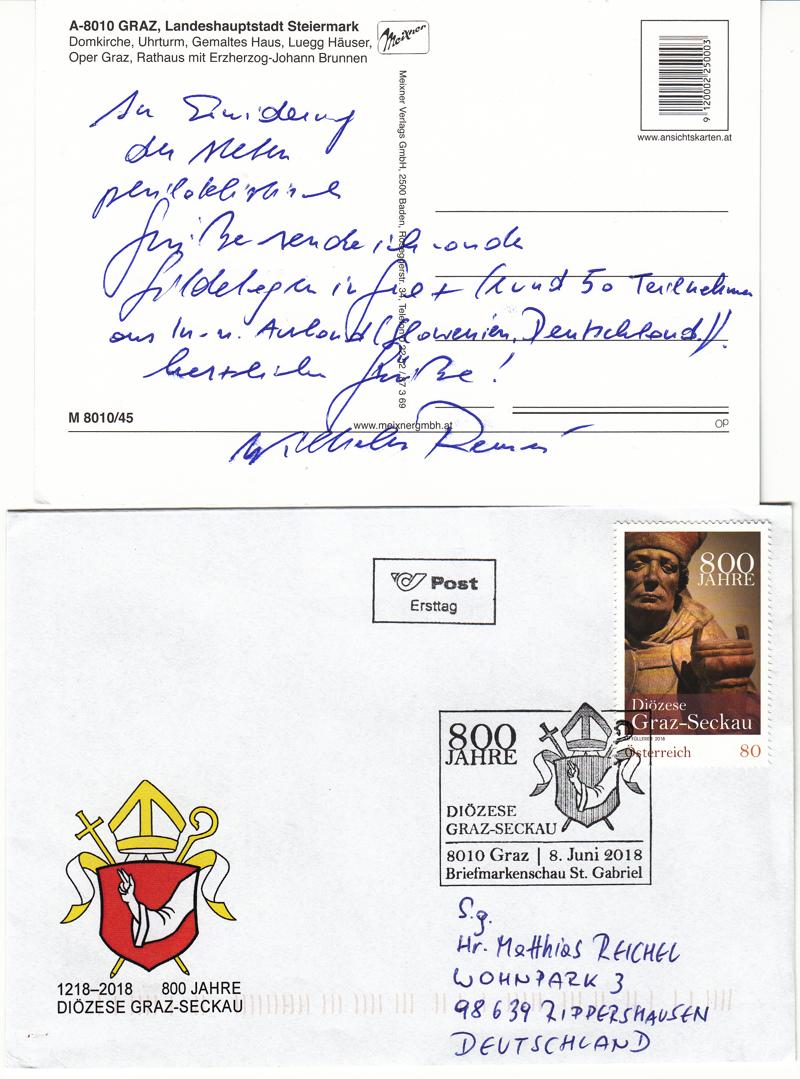 A-8010 GRAZ, Landeshauptstadt Steiermark
Domkirche, Uhrturm, Gemaltes Haus, Luegg Häuser,
Oper Graz, Rathaus mit Erzherzog-Johann Brunnen
Meixner
9 120002 250003
www.ansichtskarten.at
Meixner Verlags GmbH, 2500 Baden, Roseggerstr. 34, Telefon
der
Grüße sende ich
Gildetagen in Graz (rund 50 Teilnehmer
aus In- u. Ausland (Slowenien, Deutschland)).
herzliche Grüße!
M 8010/45
www.meixnergmbh.at
OP
Wilhelm
Post
Ersttag
800
JAHRE
Diözese
Graz-Seckau
Österreich 80
800
JAHRE
DIÖZESE
GRAZ-SECKAU
8010 Graz | 8. Juni 2018
Briefmarkenschau St. Gabriel
1218–2018 800 JAHRE
DIÖZESE GRAZ-SECKAU
S.g.
Hr. Matthias REICHEL
WOHNPARK 3
98639 RIPPERSHAUSEN
DEUTSCHLAND